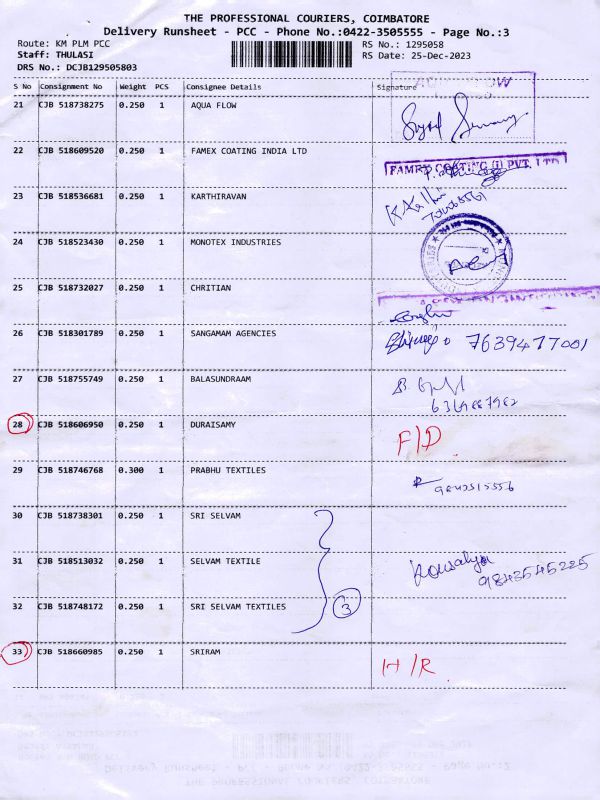 THE PROFESSIONAL COURIERS, COIMBATORE
Delivery Runsheet - PCC - Phone No.:0422-3505555 - Page No.:3
Route: KM PLM PCC
RS No.: 1295058
Staff: THULASI
RS Date: 25-Dec-2023
DRS No.: DCJB129505803
S No Consignment No Weight PCS Consignee Details Signature
21 CJB 518738275 0.250 1 AQUA FLOW
22 CJB 518609520 0.250 1 FAMEX COATING INDIA LTD
FAMEX COATING (I) PVT. LTD
23 CJB 518536681 0.250 1 KARTHIRAVAN
24 CJB 518523430 0.250 1 MONOTEX INDUSTRIES
25 CJB 518732027 0.250 1 CHRITIAN
26 CJB 518301789 0.250 1 SANGAMAM AGENCIES 7639477001
27 CJB 518755749 0.250 1 BALASUNDRAAM
28 CJB 518606950 0.250 1 DURAISAMY F/D
29 CJB 518746768 0.300 1 PRABHU TEXTILES
30 CJB 518738301 0.250 1 SRI SELVAM
31 CJB 518513032 0.250 1 SELVAM TEXTILE Kowsalya
9843545225
32 CJB 518748172 0.250 1 SRI SELVAM TEXTILES 3
33 CJB 518660985 0.250 1 SRIRAM H/R